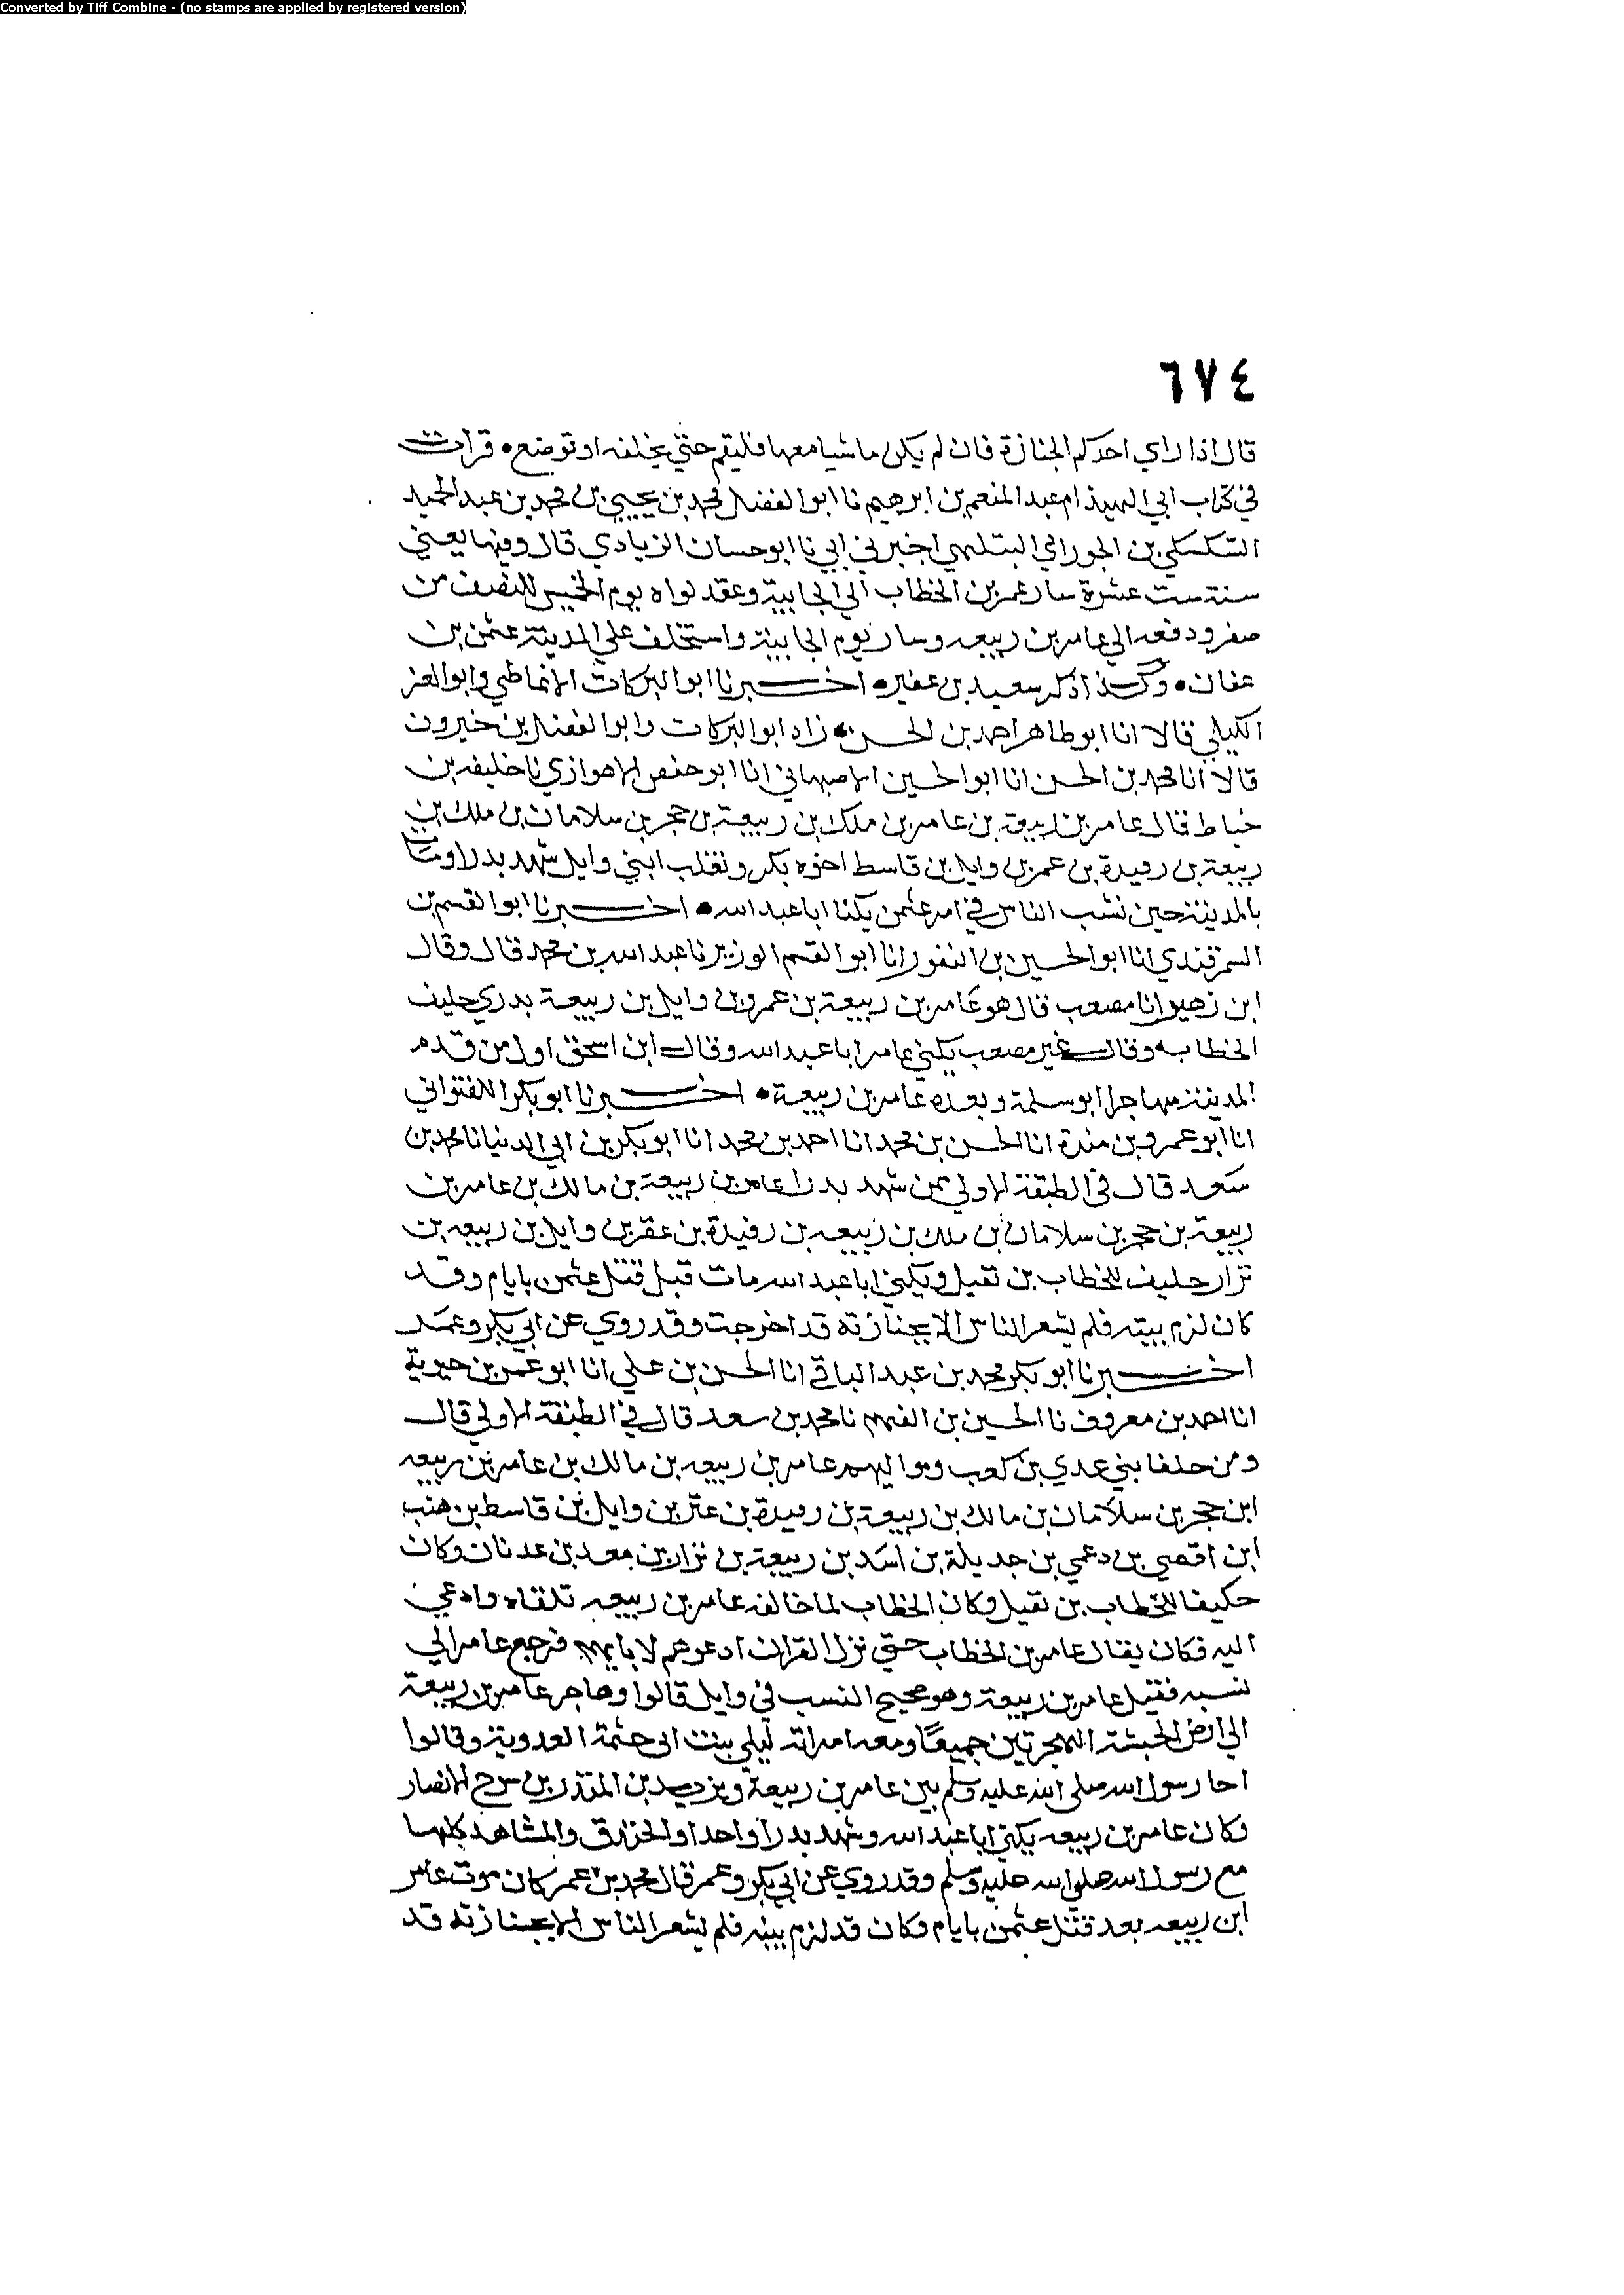 Converted by Tiff Combine - (no stamps are applied by registered version)
٦٧٤
قال اذا راي احدكم الجنازة فان لم يكن ماشيا معها فليقم حتي يخلفه او توضع • قرات
في كتاب ابي الهيذام عبد المنعم بن ابرهيم نا ابو الفضل محمد بن يحيي بن محمد بن عبد الحميد
السكسكي بن الحوراني البتلهي اخبرني ابي نا ابو حسان الزيادي قال وفيها يعني
سنة ست عشرة سار عمر بن الخطاب الي الجابية وعقد لواه يوم الخميس للنصف من
صفر ودفعه الي عامر بن ربيعه وسار يوم الجابية واستخلف علي المدينة عثمن بن
عفان • وكذا ذكر سعيد بن عفير • اخبرنا ابو البركات الانماطي وابو العز
الكيلي قالا انا ابو طاهر احمد بن الحسن • زاد ابو البركات وابو الفضل بن خيرون
قالا انا محمد بن الحسن انا ابو الحسين الاصبهاني انا ابو حفص الاهوازي نا خليفه بن
خياط قال عامر بن ربيعة بن عامر بن ملك بن ربيعة بن حجر بن سلامان بن ملك بن
ربيعة بن رفيدة بن عمر بن وايل بن قاسط اخوه بكر وتغلب ابني وايل شهد بدرا ومات
بالمدينة حين نشب الناس في امر عثمن يكنا ابا عبد الله • اخبرنا ابو القسم بن
السمرقندي انا ابو الحسين بن النقور انا ابو القسم الوزير نا عبد الله بن محمد قال وقال
ابن زهير انا مصعب قال هو عامر بن ربيعة بن عمرو بن وايل بن ربيعة بدري حليف
الخطاب وقال غير مصعب يكني عامر ابا عبد الله وقال ابن اسحق اول من قدم
المدينة مهاجرا ابو سلمة وبعده عامر بن ربيعة • اخبرنا ابو بكر اللفتواني
انا ابو عمرو بن مندة انا الحسن بن محمد انا احمد بن محمد انا ابو بكر بن ابي الدنيا نا محمد بن
سعد قال في الطبقة الاولي ممن شهد بدرا عامر بن ربيعة بن مالك بن عامر بن
ربيعة بن حجر بن سلامان بن ملك بن ربيعه بن رفيدة بن عقر بن وايل بن ربيعه بن
نزار حليف للخطاب بن نفيل ويكني ابا عبد الله مات قبل قتل عثمن بايام وقد
كان لزم بيته فلم يشعر الناس الا بجنازته قد اخرجت وقد روي عن ابي بكر وعمر
اخبرنا ابو بكر محمد بن عبد الباقي انا الحسن بن علي انا ابو عمر بن حيوية
انا احمد بن معروف نا الحسين بن الفهم نا محمد بن سعد قال في الطبقة الاولي قال
ومن حلفا بني عدي بن كعب ومواليهم عامر بن ربيعه بن مالك بن عامر بن ربيعه
ابن حجر بن سلامان بن مالك بن ربيعة بن رفيدة بن عنز بن وايل بن قاسط بن هنب
ابن افصي بن دعمي بن جديلة بن اسد بن ربيعة بن نزار بن معد بن عدنان وكان
حليفا للخطاب بن نفيل وكان الخطاب لما حالفه عامر بن ربيعه تبناه وادعي
اليه فكان يقال عامر بن الخطاب حتي نزل القران ادعوهم لابايهم فرجع عامر الي
نسبه فقيل عامر بن ربيعة وهو صحيح النسب في وايل قالوا وهاجر عامر بن ربيعة
الي ارض الحبشة الهجرتين جميعًا ومعه امراته ليلي بنت ابي حثمة العدوية وقالوا
اخا رسول الله صلي الله عليه وسلم بين عامر بن ربيعة ويزيد بن المنذر بن سرح الانصار
وكان عامر بن ربيعه يكني ابا عبد الله وشهد بدرا واحدا والخندق والمشاهد كلها
مع رسول الله صلي الله عليه وسلم وقد روي عن ابي بكر وعمر قال محمد بن عمر كان موت عامر
ابن ربيعه بعد قتل عثمن بايام وكان قد لزم بيته فلم يشعر الناس الا بجنازته قد